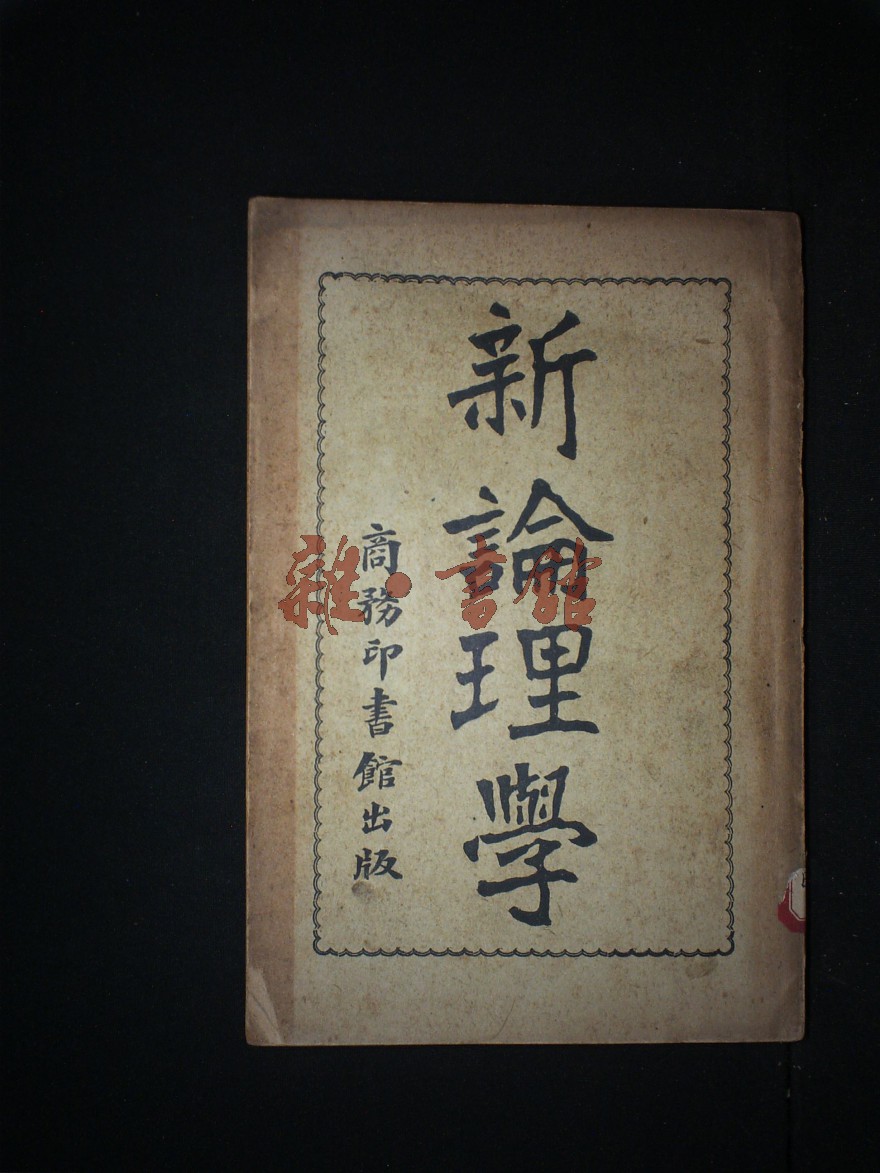 新論理學
商務印書館出版
雜·書館